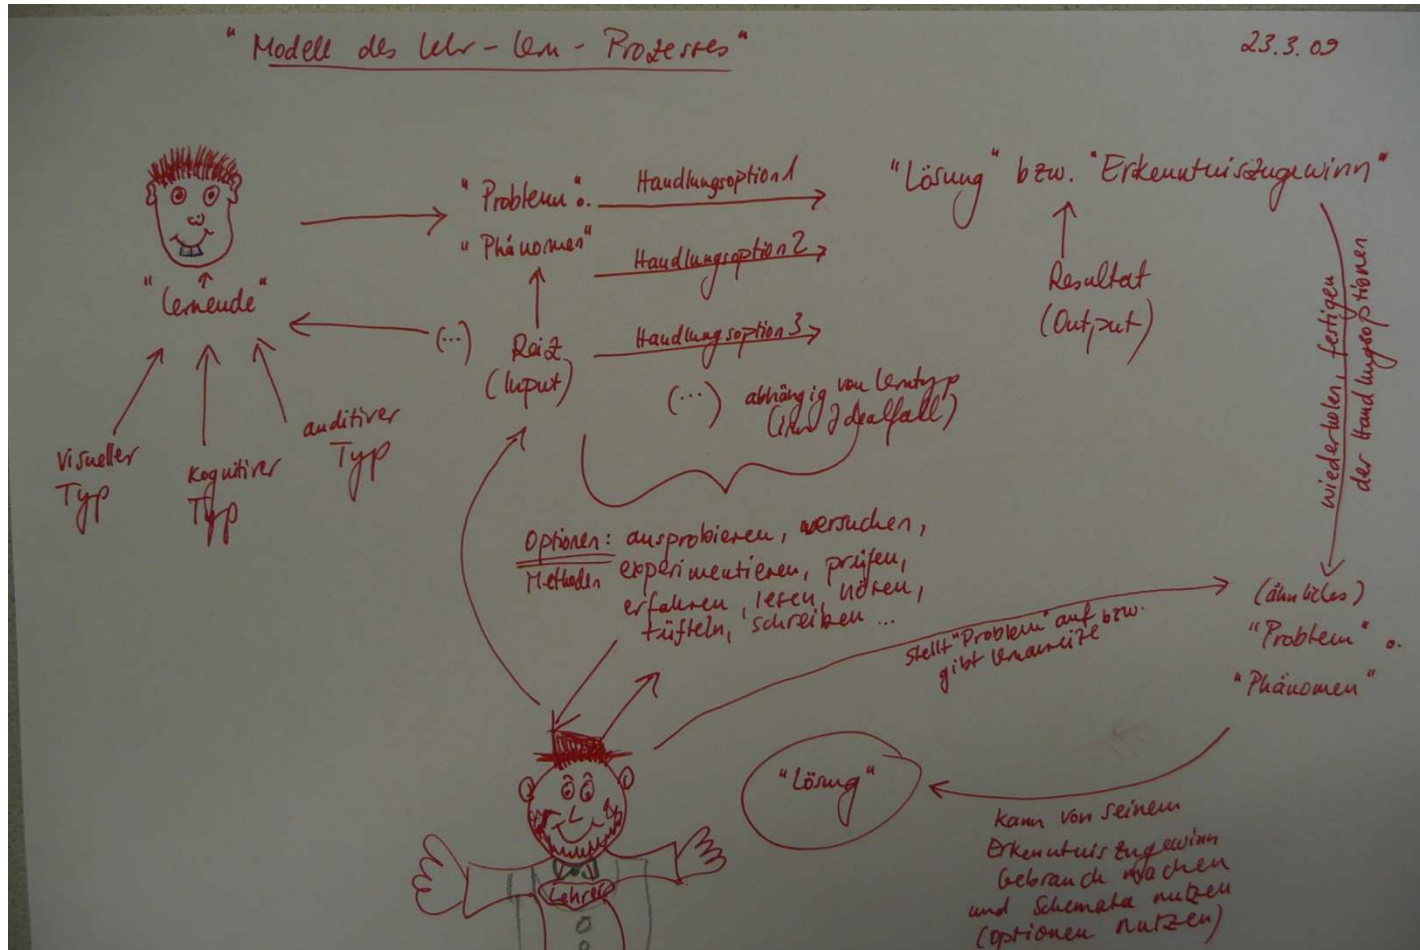 "Modell des Lehr-Lern-Prozesses"
23.3.09
"Lernende"
visueller
Typ
kognitiver
Typ
auditiver
Typ
(...)
"Problem" o.
"Phänomen"
Reiz
(Input)
Handlungsoption 1
Handlungsoption 2
Handlungsoption 3
(...)
abhängig von Lerntyp
(im Idealfall)
"Lösung" bzw. "Erkenntniszugewinn"
Resultat
(Output)
wiederholen, fertigen
der Handlungsoptionen
Optionen: ausprobieren, versuchen,
Methoden experimentieren, prüfen,
erfahren, lesen, hören,
tüfteln, schreiben ...
stellt "Problem" auf bzw.
gibt Lernanreize
(ähnliches)
"Problem" o.
"Phänomen"
"Lösung"
kann von seinem
Erkenntniszugewinn
Gebrauch machen
und Schemata nutzen
(Optionen nutzen)
Lehrer